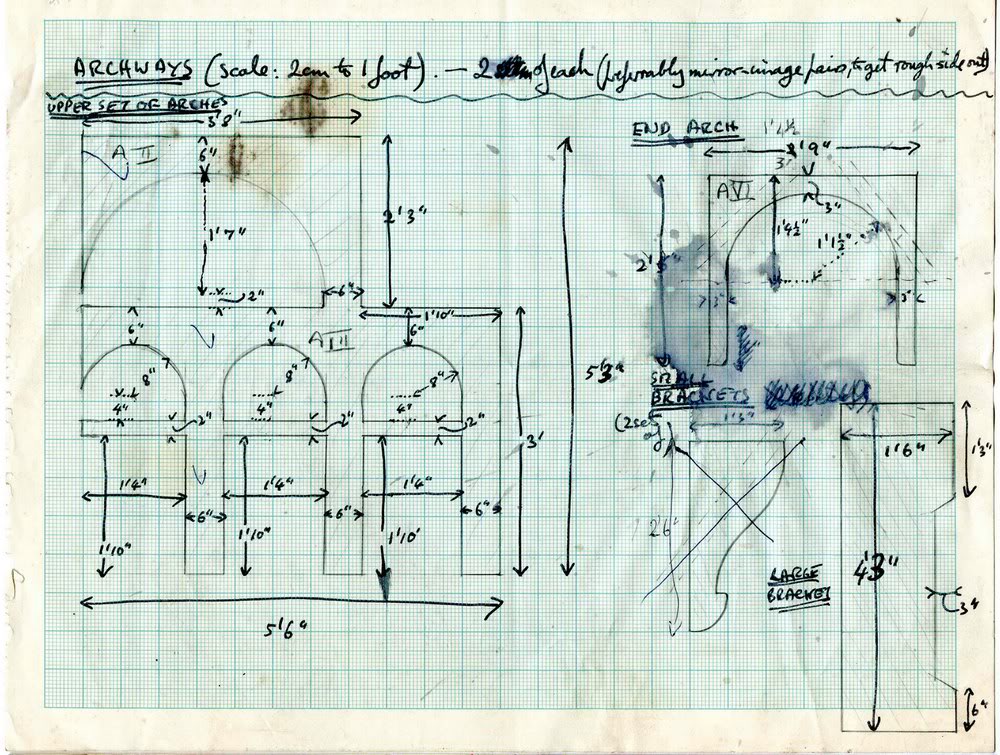 ARCHWAYS (scale: 2cm to 1 foot). — 2 of each (preferrably mirror-image pairs, to get rough side out)
UPPER SET OF ARCHES
3'8"
END ARCH 1'4½
9"
3'
A II
6"
A VI
3"
2'3"
1'7"
1'4½"
1'1½"
2"
6"
3"
3"
1'10"
6"
6"
6"
A III
8"
8"
8"
5'3"
4"
4"
4"
2"
2"
2"
3'
SMALL
BRACKETS
(2 sets
of)
1'3"
1'6"
1'3"
1'4"
1'4"
1'4"
6"
6"
6"
1'10"
1'10"
1'10'
2'6"
4'3"
LARGE
BRACKET
3"
5'6"
6"